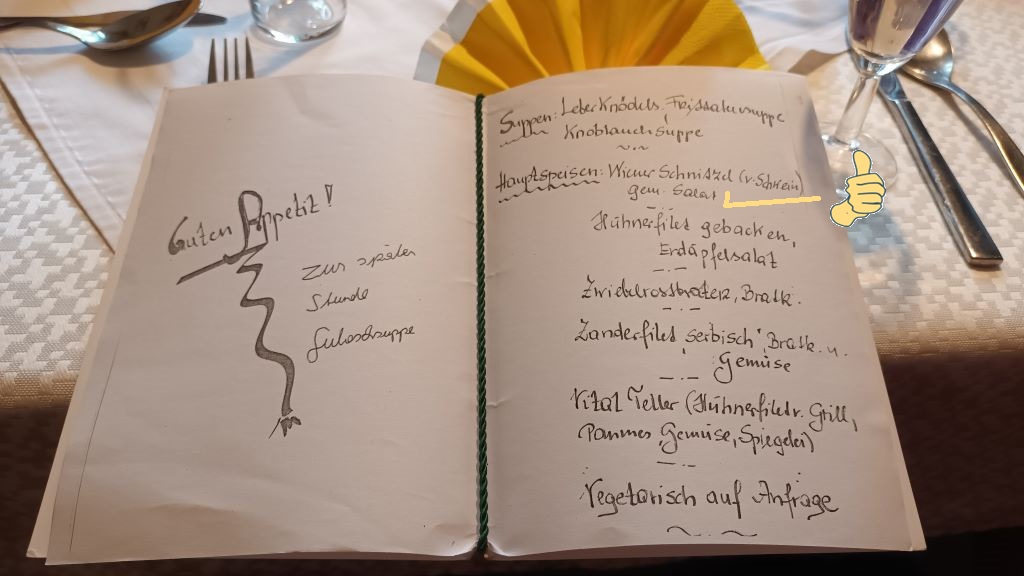 Guten Appetit!
Zur späten
Stunde
Gulaschsuppe
Suppen: Leberknödels, Frissatensuppe
Knoblauchsuppe
Hauptspeisen: Wiener Schnitzel (v. Schwein)
gem. Salat
Hühnerfilet gebacken,
Erdäpfelsalat
Zwiebelrostbraten, Bratk.
Zanderfilet "serbisch" Bratk. u.
Gemüse
Vital Teller (Hühnerfilet v. Grill,
Pommes, Gemüse, Spiegelei)
Vegetarisch auf Anfrage